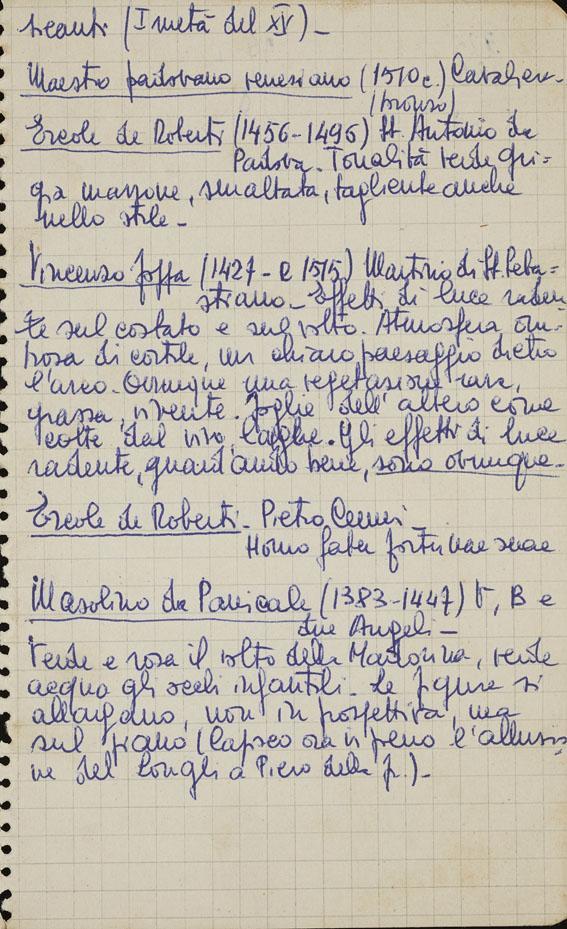 (I metà del XV)_
Maestro padovano veneziano (1510 c.) Cavaliere_
(bronzo)
Ercole de Roberti (1456-1496) St. Antonio da
Padova. Tonalità verde gri=
gia marrone, smaltata, tagliente anche
nello stile_
Vincenzo foppa (1427 - e 1515) Martirio di St. Seba=
stiano_ Effetti di luce raden
te sul costato e sul volto. Atmosfera om
brosa di cortile, un chiaro paesaggio dietro
l'arco. Ovunque una vegetazione rara,
grassa, vivente. foglie dell'albero come
colte dal vivo, larghe. Gli effetti di luce
radente, guardando bene, sono ovunque_
Ercole de Roberti_ Pietro
Homo faber fortunae suae
Masolino da Panicale (1383-1447) V, B e
due Angeli_
Verde e rosa il volto della Madonna, verde
acqua gli occhi infantili_ Le figure si
allargano, non in prospettiva, ma
sul piano (capisco ora in pieno l'allusio
ne del Longhi a Piero della f.)_